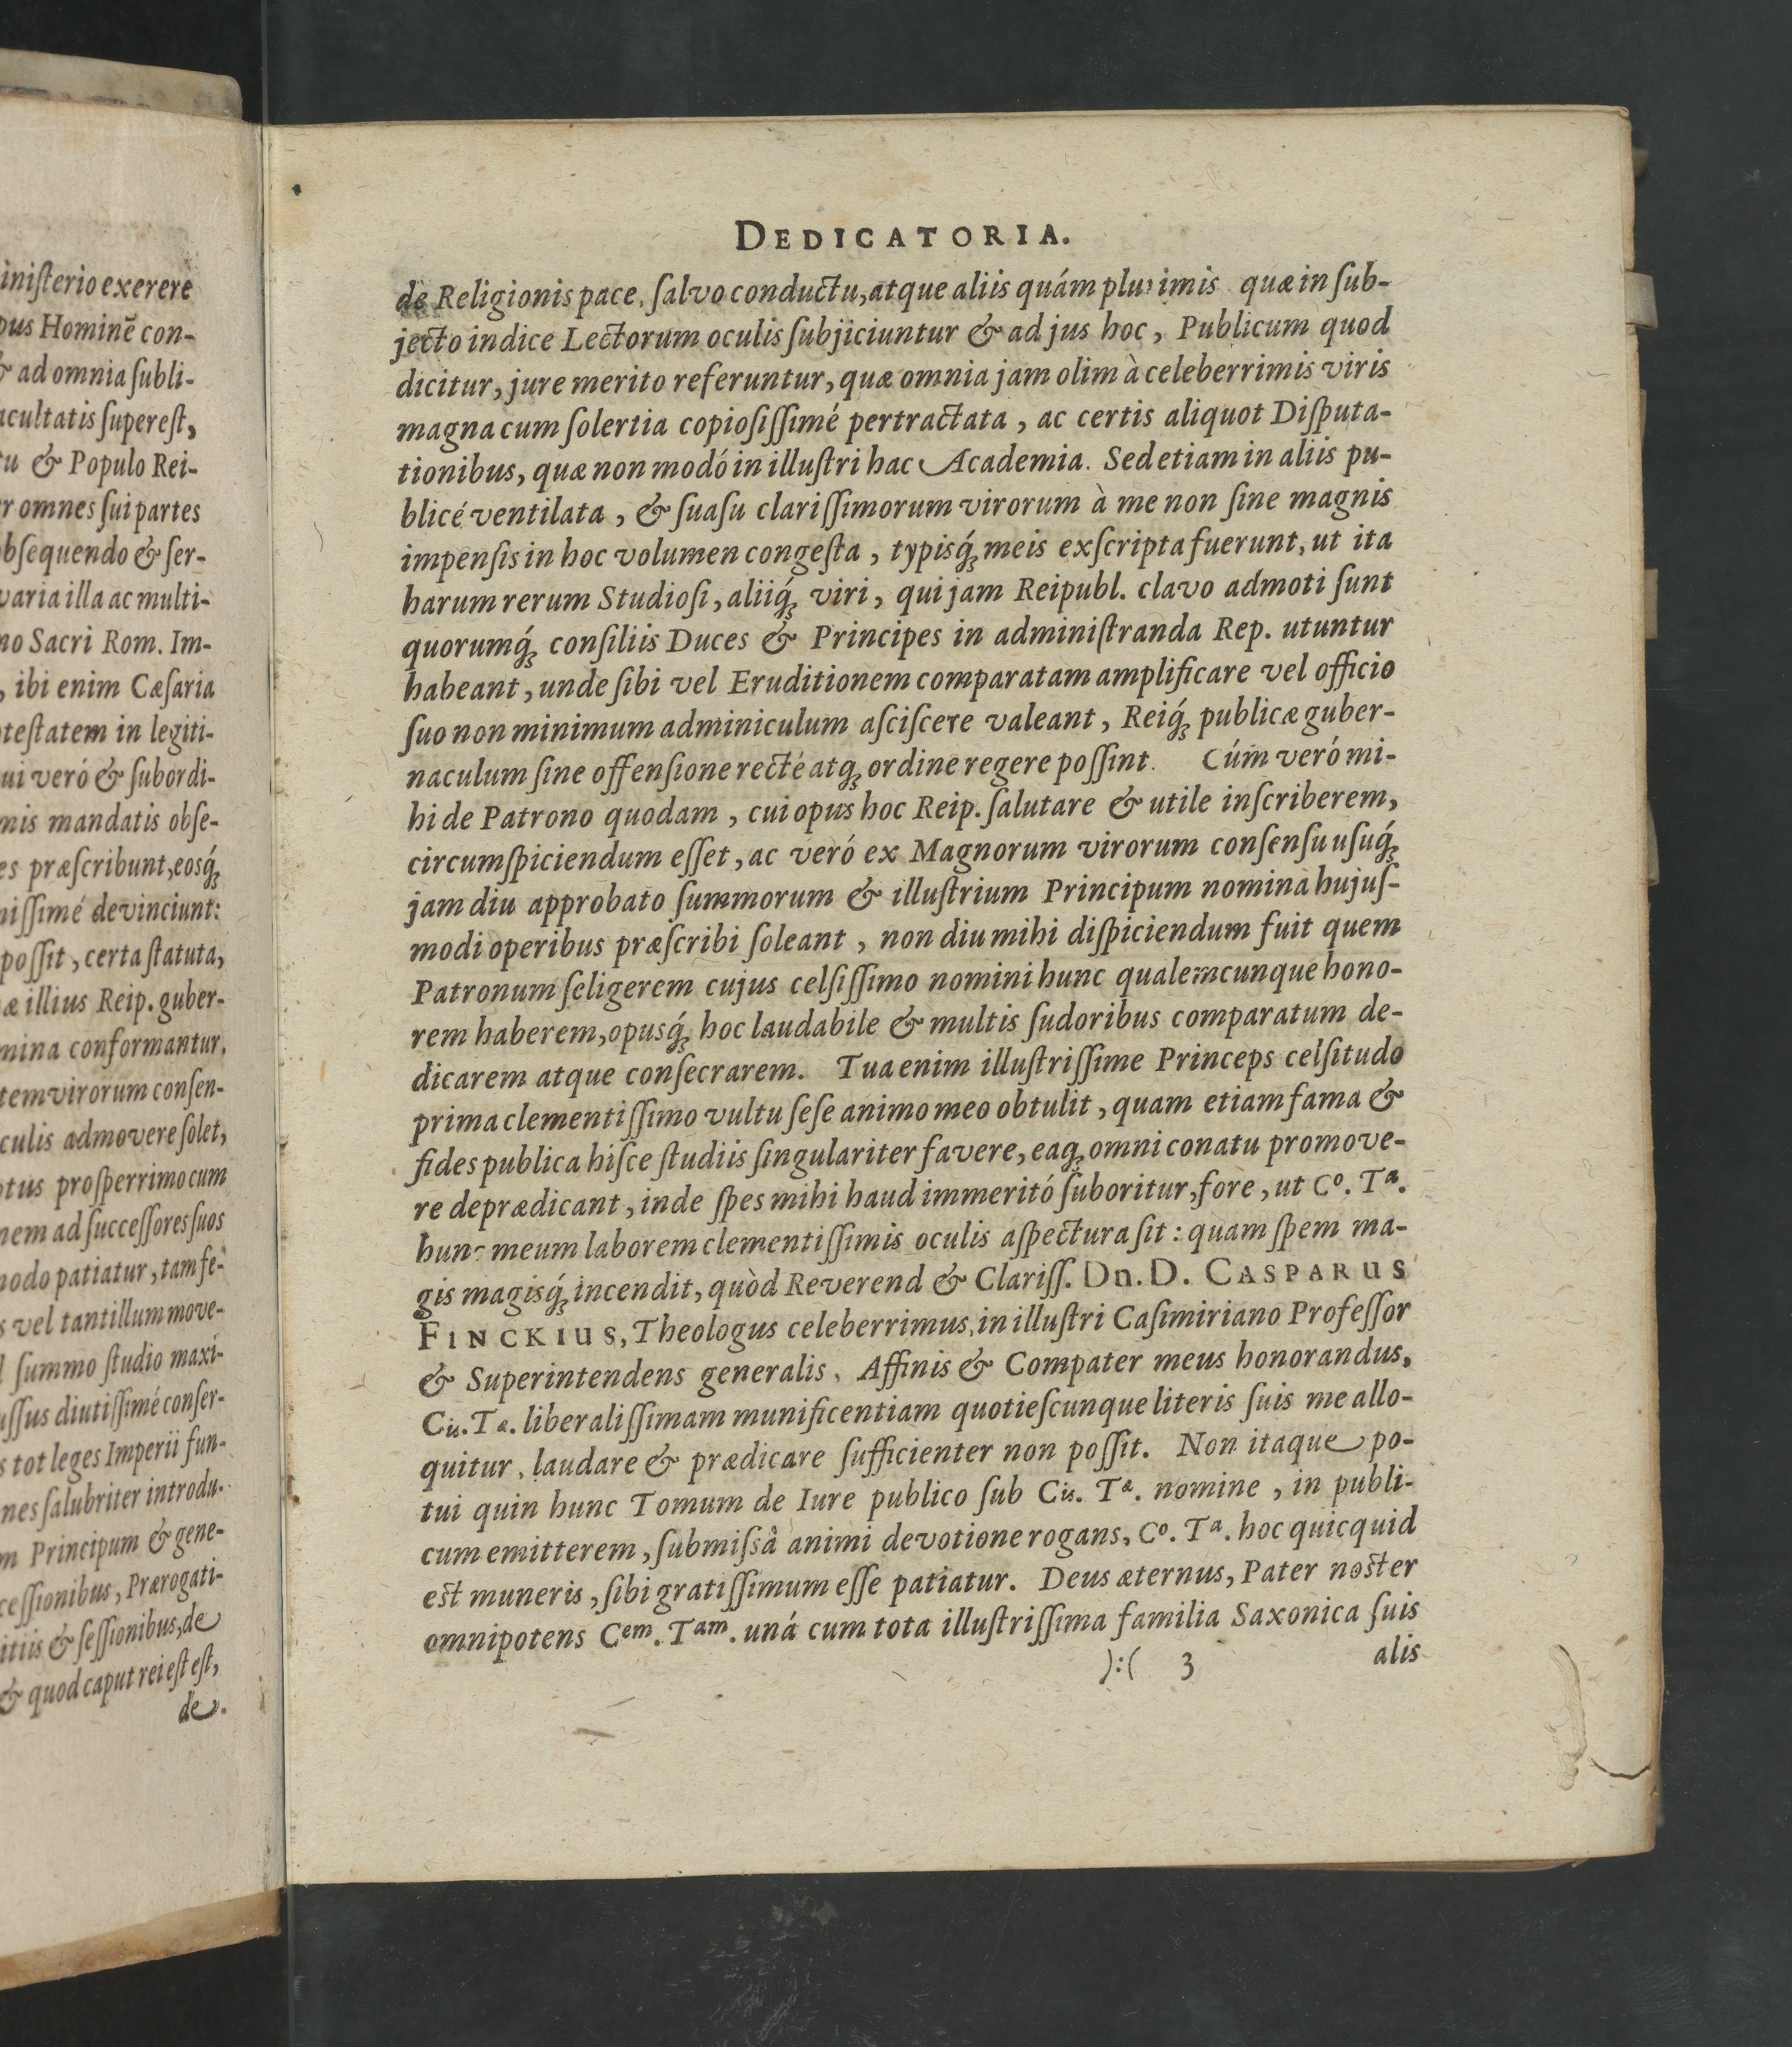 iniſterio exerere
pus Hominē con-
& ad omnia ſubli-
acultatis ſupereſt,
tu & Populo Rei-
er omnes ſui partes
obſequendo & ſer-
varia illa ac multi-
no Sacri Rom. Im-
, ibi enim Cæſaria
oteſtatem in legiti-
ui veró & ſubordi-
mis mandatis obſe-
es præſcribunt, eosq́;
niſſimé devinciunt:
poſſit, certa ſtatuta,
æ illius Reip. guber-
mina conformantur.
tem virorum conſen-
culis admovere ſolet,
otus proſperrimo cum
nem ad ſucceſſores ſuos
modo patiatur, tam fe-
s vel tantillum move-
l ſummo ſtudio maxí-
uſſus diutiſſimé conſer-
s tot leges Imperii fun-
nes ſalubriter introdu-
m Principum & gene-
ceſſionibus, Prærogati-
itiis & ſeſſionibus, de
& quod caput rei eſt eſt,
de
DEDICATORIA.
de Religionis pace, ſalvo conductu, atque aliis quám plurimis quæ in ſub-
jecto indice Lectorum oculis ſubjiciuntur & ad jus hoc, Publicum quod
dicitur, jure merito referuntur, quæ omnia jam olim à celeberrimis viris
magna cum ſolertia copioſiſſimé pertractata, ac certis aliquot Diſputa-
tionibus, quæ non modó in illuſtri hac Academia. Sed etiam in aliis pu-
blicé ventilata, & ſuaſu clariſſimorum virorum à me non ſine magnis
impenſis in hoc volumen congeſta, typisq́; meis exſcripta fuerunt, ut ita
harum rerum Studioſi, aliiq́; viri, qui jam Reipubl. clavo admoti ſunt
quorumq́; conſiliis Duces & Principes in adminiſtranda Rep. utuntur
habeant, unde ſibi vel Eruditionem comparatam amplificare vel officio
ſuo non minimum adminiculum aſciſcere valeant, Reiq́; publicæ guber-
naculum ſine offenſione recté atq; ordine regere poſſint. Cúm veró mi-
hi de Patrono quodam, cui opus hoc Reip. ſalutare & utile inſcriberem,
circumſpiciendum eſſet, ac veró ex Magnorum virorum conſenſu uſuq́;
jam diu approbato ſummorum & illuſtrium Principum nomina hujuſ-
modi operibus præſcribi ſoleant, non diu mihi diſpiciendum fuit quem
Patronum ſeligerem cujus celſiſſimo nomini hunc qualemcunque hono-
rem haberem, opusq́; hoc laudabile & multis ſudoribus comparatum de-
dicarem atque conſecrarem. Tua enim illuſtriſſime Princeps celſitudo
prima clementiſſimo vultu ſeſe animo meo obtulit, quam etiam fama &
fides publica hiſce ſtudiis ſingulariter favere, eaq; omni conatu promove-
re deprædicant, inde ſpes mihi haud immeritó ſuboritur, fore, ut Cº. Tª.
hunc meum laborem clementiſſimis oculis aſpectura ſit: quam ſpem ma-
gis magisq́; incendit, quòd Reverend & Clariſſ. Dn. D. CASPARUS
FINCKIUS, Theologus celeberrimus, in illuſtri Caſimiriano Profeſſor
& Superintendens generalis, Affinis & Compater meus honorandus,
Cis. Tæ. liberaliſſimam munificentiam quotieſcunque literis ſuis me allo-
quitur, laudare & prædicare ſufficienter non poſſit. Non itaque po-
tui quin hunc Tomum de Iure publico ſub Cis. Tæ. nomine, in publi-
cum emitterem, ſubmiſsâ animi devotione rogans, Cº. Tª. hoc quicquid
eſt muneris, ſibi gratiſſimum eſſe patiatur. Deus æternus, Pater noſter
omnipotens Cem. Tam. uná cum tota illuſtriſſima familia Saxonica ſuis
):( 3 alis